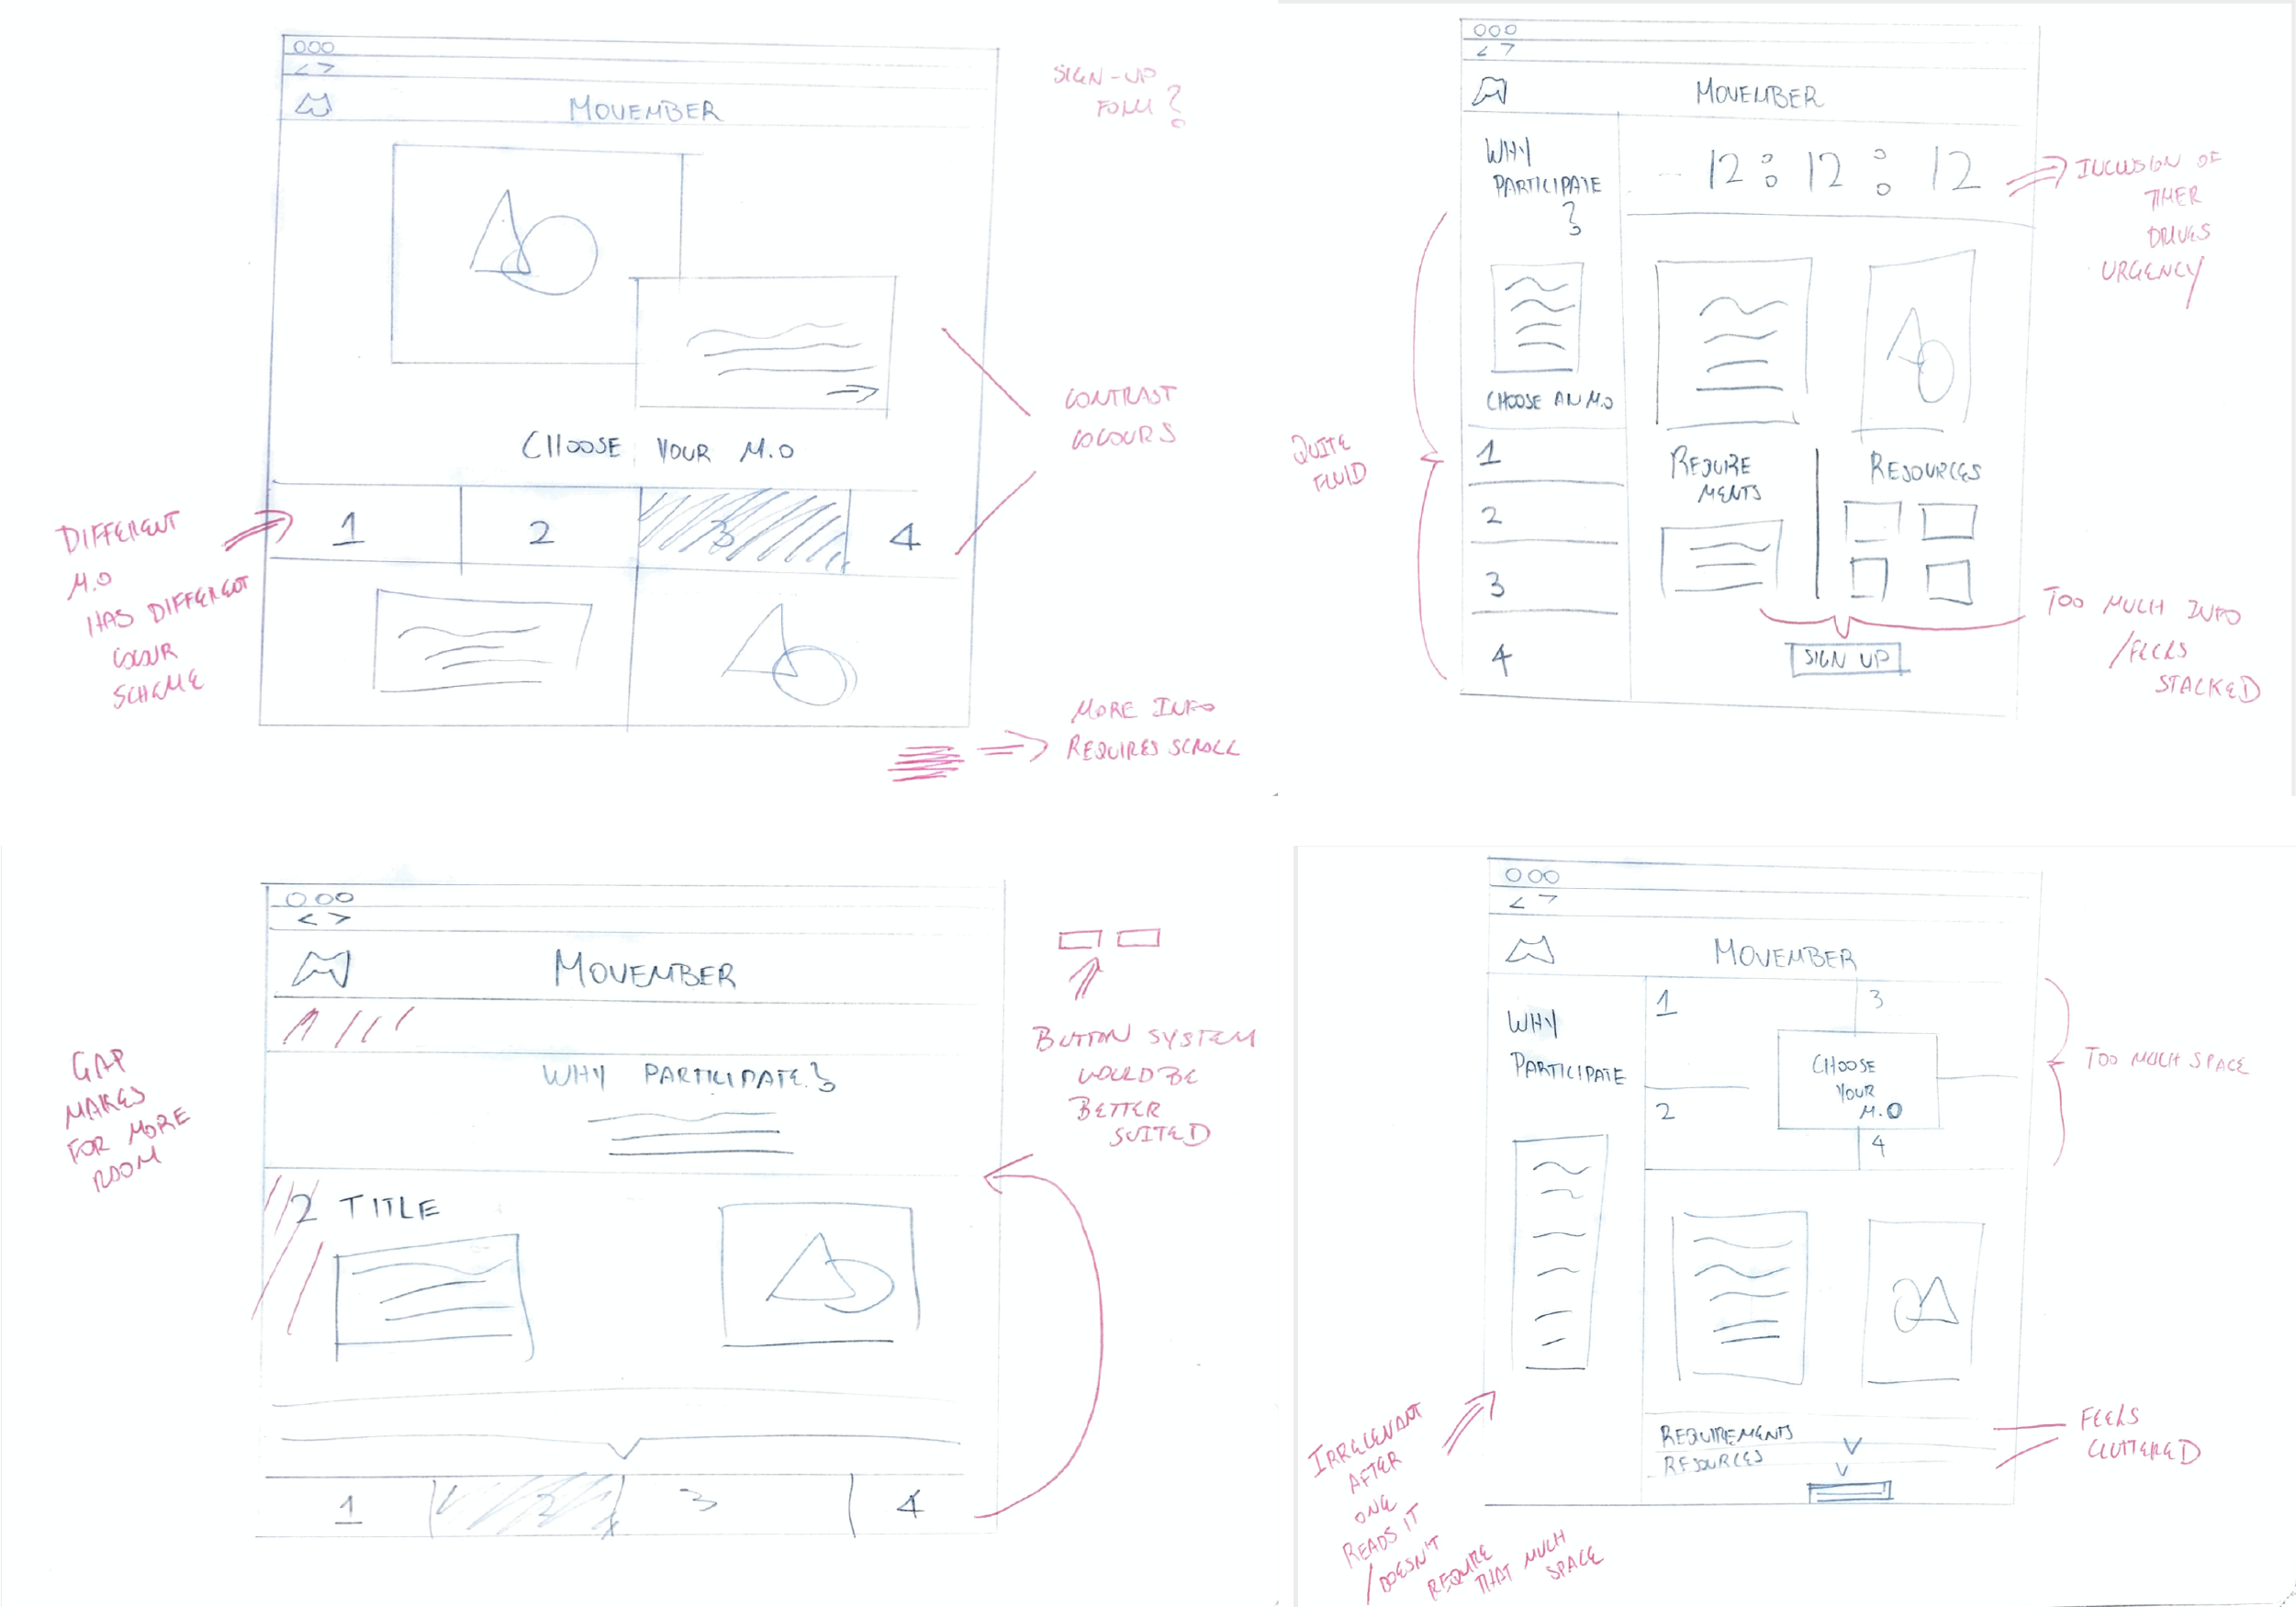 MOVEMBER
SIGN-UP
FORM ?
CONTRAST
COLOURS
CHOOSE YOUR M.O
1 2 3 4
DIFFERENT
M.O
HAS DIFFERENT
COLOUR
SCHEME
MORE INFO
REQUIRES SCROLL
MOVEMBER
WHY
PARTICIPATE
?
12:12:12
INCLUSION OF
TIMER
DRIVES
URGENCY
CHOOSE AN M.O
1
2
3
4
QUITE
FLUID
REQUIRE
MENTS
RESOURCES
SIGN UP
TOO MUCH INFO
/FEELS
STACKED
MOVEMBER
WHY PARTICIPATE?
GAP
MAKES
FOR MORE
ROOM
BUTTON SYSTEM
WOULD BE
BETTER
SUITED
2 TITLE
1 2 3 4
MOVEMBER
WHY
PARTICIPATE
1
3
CHOOSE
YOUR
M.O
2
4
TOO MUCH SPACE
REQUIREMENTS
RESOURCES
FEELS
CLUTTERED
IRRELEVANT
AFTER
ONE
READS IT
/DOESN'T
REQUIRE
THAT MUCH
SPACE